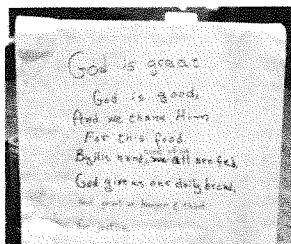 God is great
God is good,
And we thank Him
For this food
By His hand, we all are fed,
God give us our daily bread,